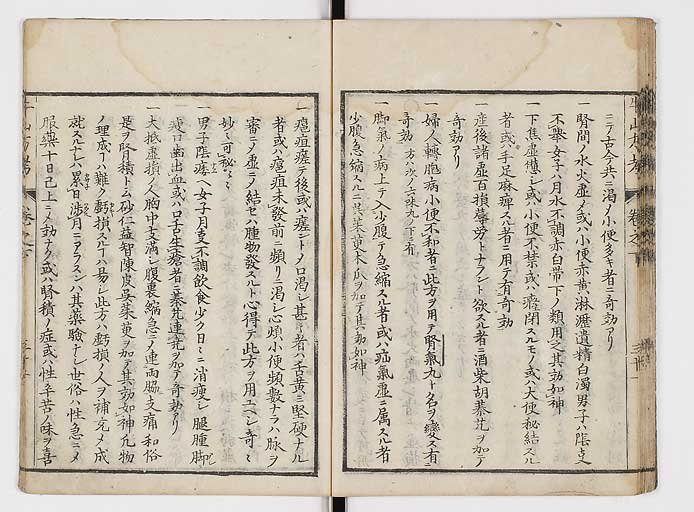 ミテ古今共ニ渇ノ小便多キ者ニ奇効アリ
一腎間ノ水火虚ノ或ハ小便赤黄淋瀝遺精白濁男子ハ陰支
不樂女子ハ月水不調赤白帯下ノ類用之其効如神
一下焦虚憊シ或小便不禁或ハ癃閉スルモノ或ハ大便秘結スル
者或ハ手足麻痺スル者ニ用テ有奇効
一産後諸虚百損蓐労トナラント欲スル者ニ酒柴胡蓁艽ヲ加テ
奇効アリ
一婦人轉胞病小便不利者ニ此方ヲ用テ腎氣九ト名ヲ變ス有
奇効
一脚氣ノ病上テ入少腹テ急縮スル者或ハ疝氣虚ニ属スル者
少腹急縮スルニ共茱萸木瓜ヲ加テ其効如神
一疱疽瘥テ後或ハ瘥ントノ口渇シ甚キ者ハ舌黄ニ堅硬ナル
者或ハ疱疽未發前ニ頻リニ渇シ心煩小便頻數ナラハ脉ヲ
審ニノ虚ニノ結セハ腫物發スルト心得テ此方ヲ用ユヘシ奇ミ
妙ミ可秘ミミ
一男子陰痿ト女子月支不調飲食少ク日ミニ消瘦シ腿腫脚
或口歯出血或ハ口舌生瘡者ニ蓁艽連売ヲ加テ奇効アリ
一大抵虚損ノ人胸中支満シ腹裏縮急ニノ連両脇支痛和俗
是ヲ腎積ト云砂仁益智陳皮呉茱萸ヲ加テ其効如神凡物
ノ理成ハ難ク虧損スルハ易シ此方ハ虧損ノ人ヲ補充メ成
就スルナレハ累日渉月ニアラスンハ其薬験ナシ世俗ハ性急ニメ
服藥十日已上ニノ効ナク或ハ腎積ノ症或ハ性辛苦ノ味ヲ喜